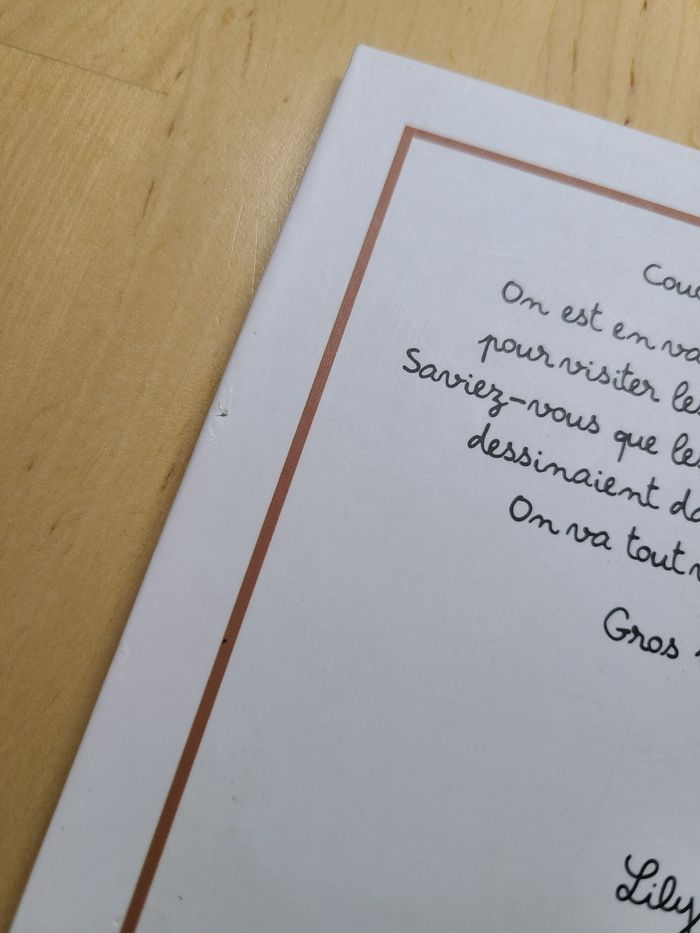 Cou
On est en va
pour visiter les
Saviez-vous que les
dessinaient da
On va tout
Gros
Lily